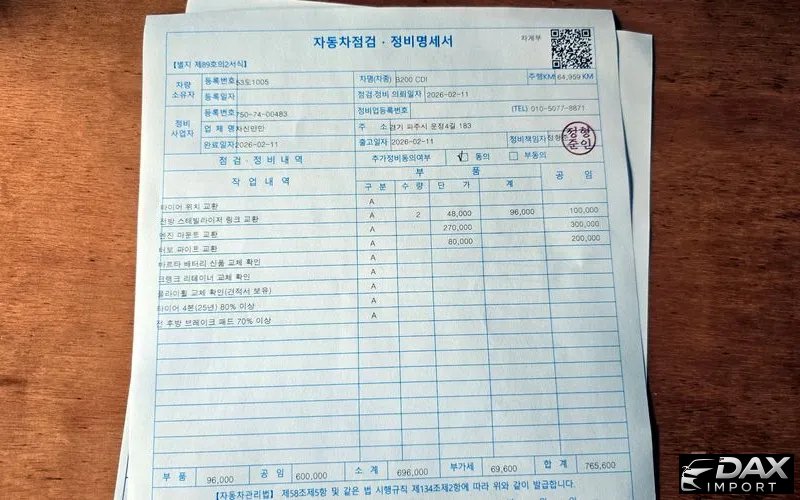 자동차점검 · 정비명세서
자계부
【별지 제89호의2서식】
차량 소유자 등록번호 53도1005 차명(차종) B200 CDI 주행KM 64,959 KM
등록일자 점검·정비 의뢰일자 2026-02-11
정비 사업자 등록번호 750-74-00483 정비업등록번호 (TEL) 010-5077-8871
업 체 명 차신만만 주 소 경기 파주시 운정4길 183
완료일자 2026-02-11 출고일자 2026-02-11 정비책임자 정형준 정형준인
점 검 · 정 비 내 역 추가정비동의여부 √ 동의 부동의
작 업 내 역 부 품 공 임
구 분 수 량 단 가 계
타이어 위치 교환 A
전방 스테빌라이저 링크 교환 A 2 48,000 96,000 100,000
엔진 마운트 교환 A 270,000 300,000
터보 파이프 교환 A 80,000 200,000
바르타 배터리 신품 교체 확인 A
크랭크 리테이너 교체 확인 A
플라이휠 교체 확인(견적서 보유) A
타이어 4본(25년) 80% 이상 A
전 후방 브레이크 패드 70% 이상 A
부 품 96,000 공 임 600,000 소 계 696,000 부가세 69,600 합 계 765,600
【자동차관리법】 제58조제5항 및 같은 법 시행규칙 제134조제2항에 따라 위와 같이 발급합니다.
DAX
IMPORT